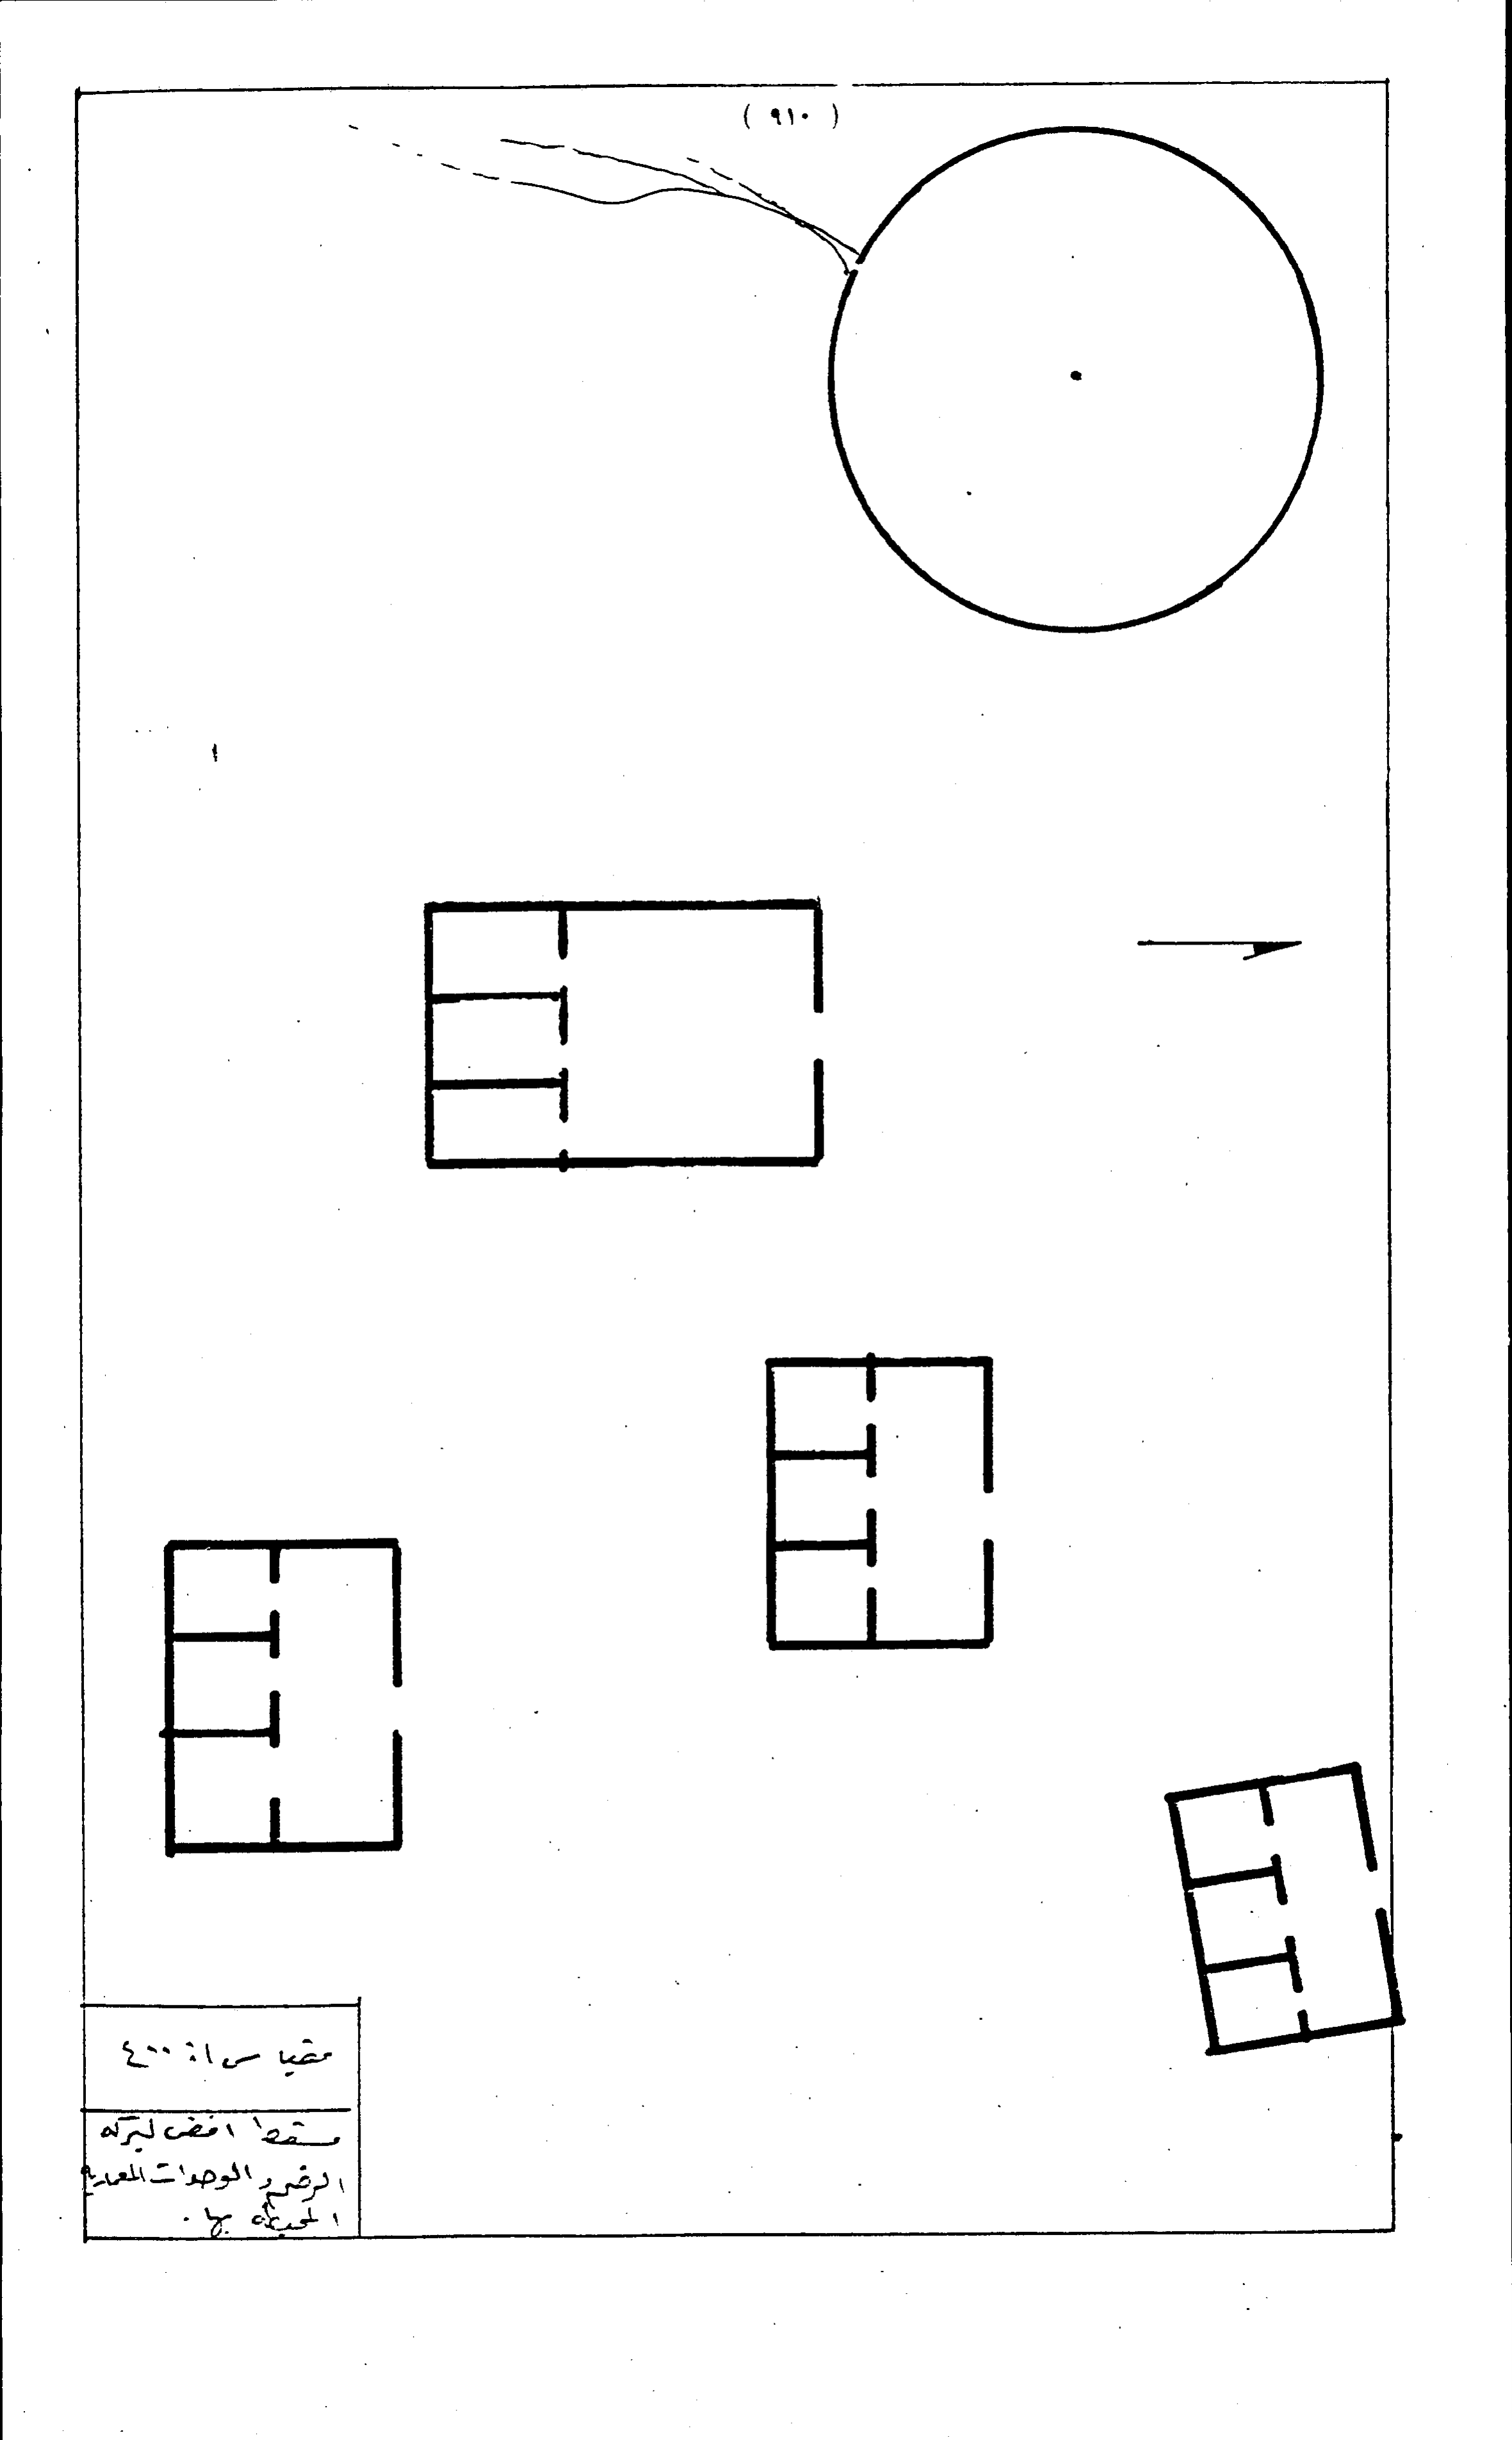 ( ٩١٠ )
مقياس ١ : ٤٠٠
مسقط افقى لبركه
الرضم والوحدات المعماريه
المحيطه بها .